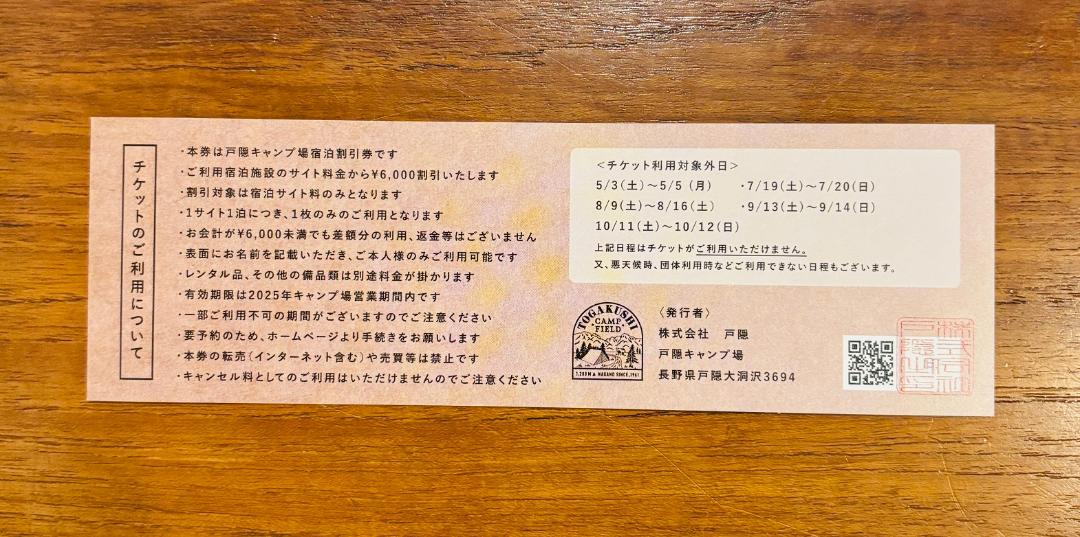 チケットのご利用について
・本券は戸隠キャンプ場宿泊割引券です
・ご利用宿泊施設のサイト料金から¥6,000割引いたします
・割引対象は宿泊サイト料のみとなります
・1サイト1泊につき、1枚のみのご利用となります
・お会計が¥6,000未満でも差額分の利用、返金等はございません
・表面にお名前を記載いただき、ご本人様のみご利用可能です
・レンタル品、その他の備品類は別途料金が掛かります
・有効期限は2025年キャンプ場営業期間内です
・一部ご利用不可の期間がございますのでご注意ください
・要予約のため、ホームページより手続きをお願いします
・本券の転売(インターネット含む)や売買等は禁止です
・キャンセル料としてのご利用はいただけませんのでご注意ください
＜チケット利用対象外日＞
5/3(土)～5/5 (月) ・7/19(土)～7/20(日)
8/9(土)～8/16(土) ・9/13(土)～9/14(日)
10/11(土)～10/12(日)
上記日程はチケットがご利用いただけません。
又、悪天候時、団体利用時などご利用できない日程もございます。
TOGAKUSHI
CAMP
FIELD
1,200M▲NAGANO SINCE.1961
〈発行者〉
株式会社 戸隠
戸隠キャンプ場
長野県戸隠大洞沢3694